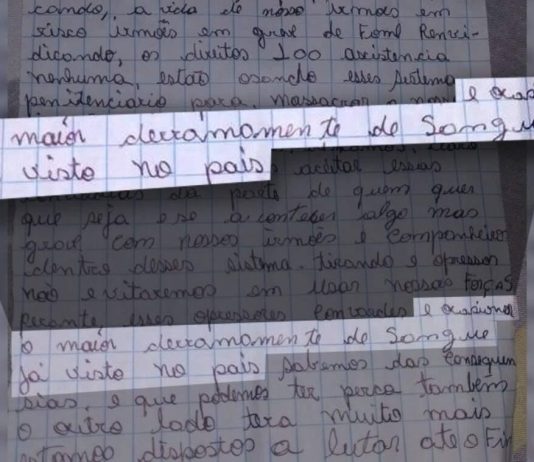 cando, a vida de nosso irmãos em
risco irmãos em grave de Fome Renvi-
dicando, os direitos 100 assistencia
nenhuma, estão osando esses sistema
penitenciario para massacrar e
maior derramamente de Sangue
visto no pais aceitar essas
da de quem quer
que seja e se acontecer algo mas
grave com nossos irmões e Companheiros
dentro desses sistema. tirando e opressor
não evitaremos em usar nossas Forças
Perante esses opressores convardes e ocasionar
o maior derramamente de Sangue
já visto no pais sabemos das Consequen
sias, e que podemos ter perca também
o outro lado tera muito mais
estamos dispostos a lutar ate o Fim